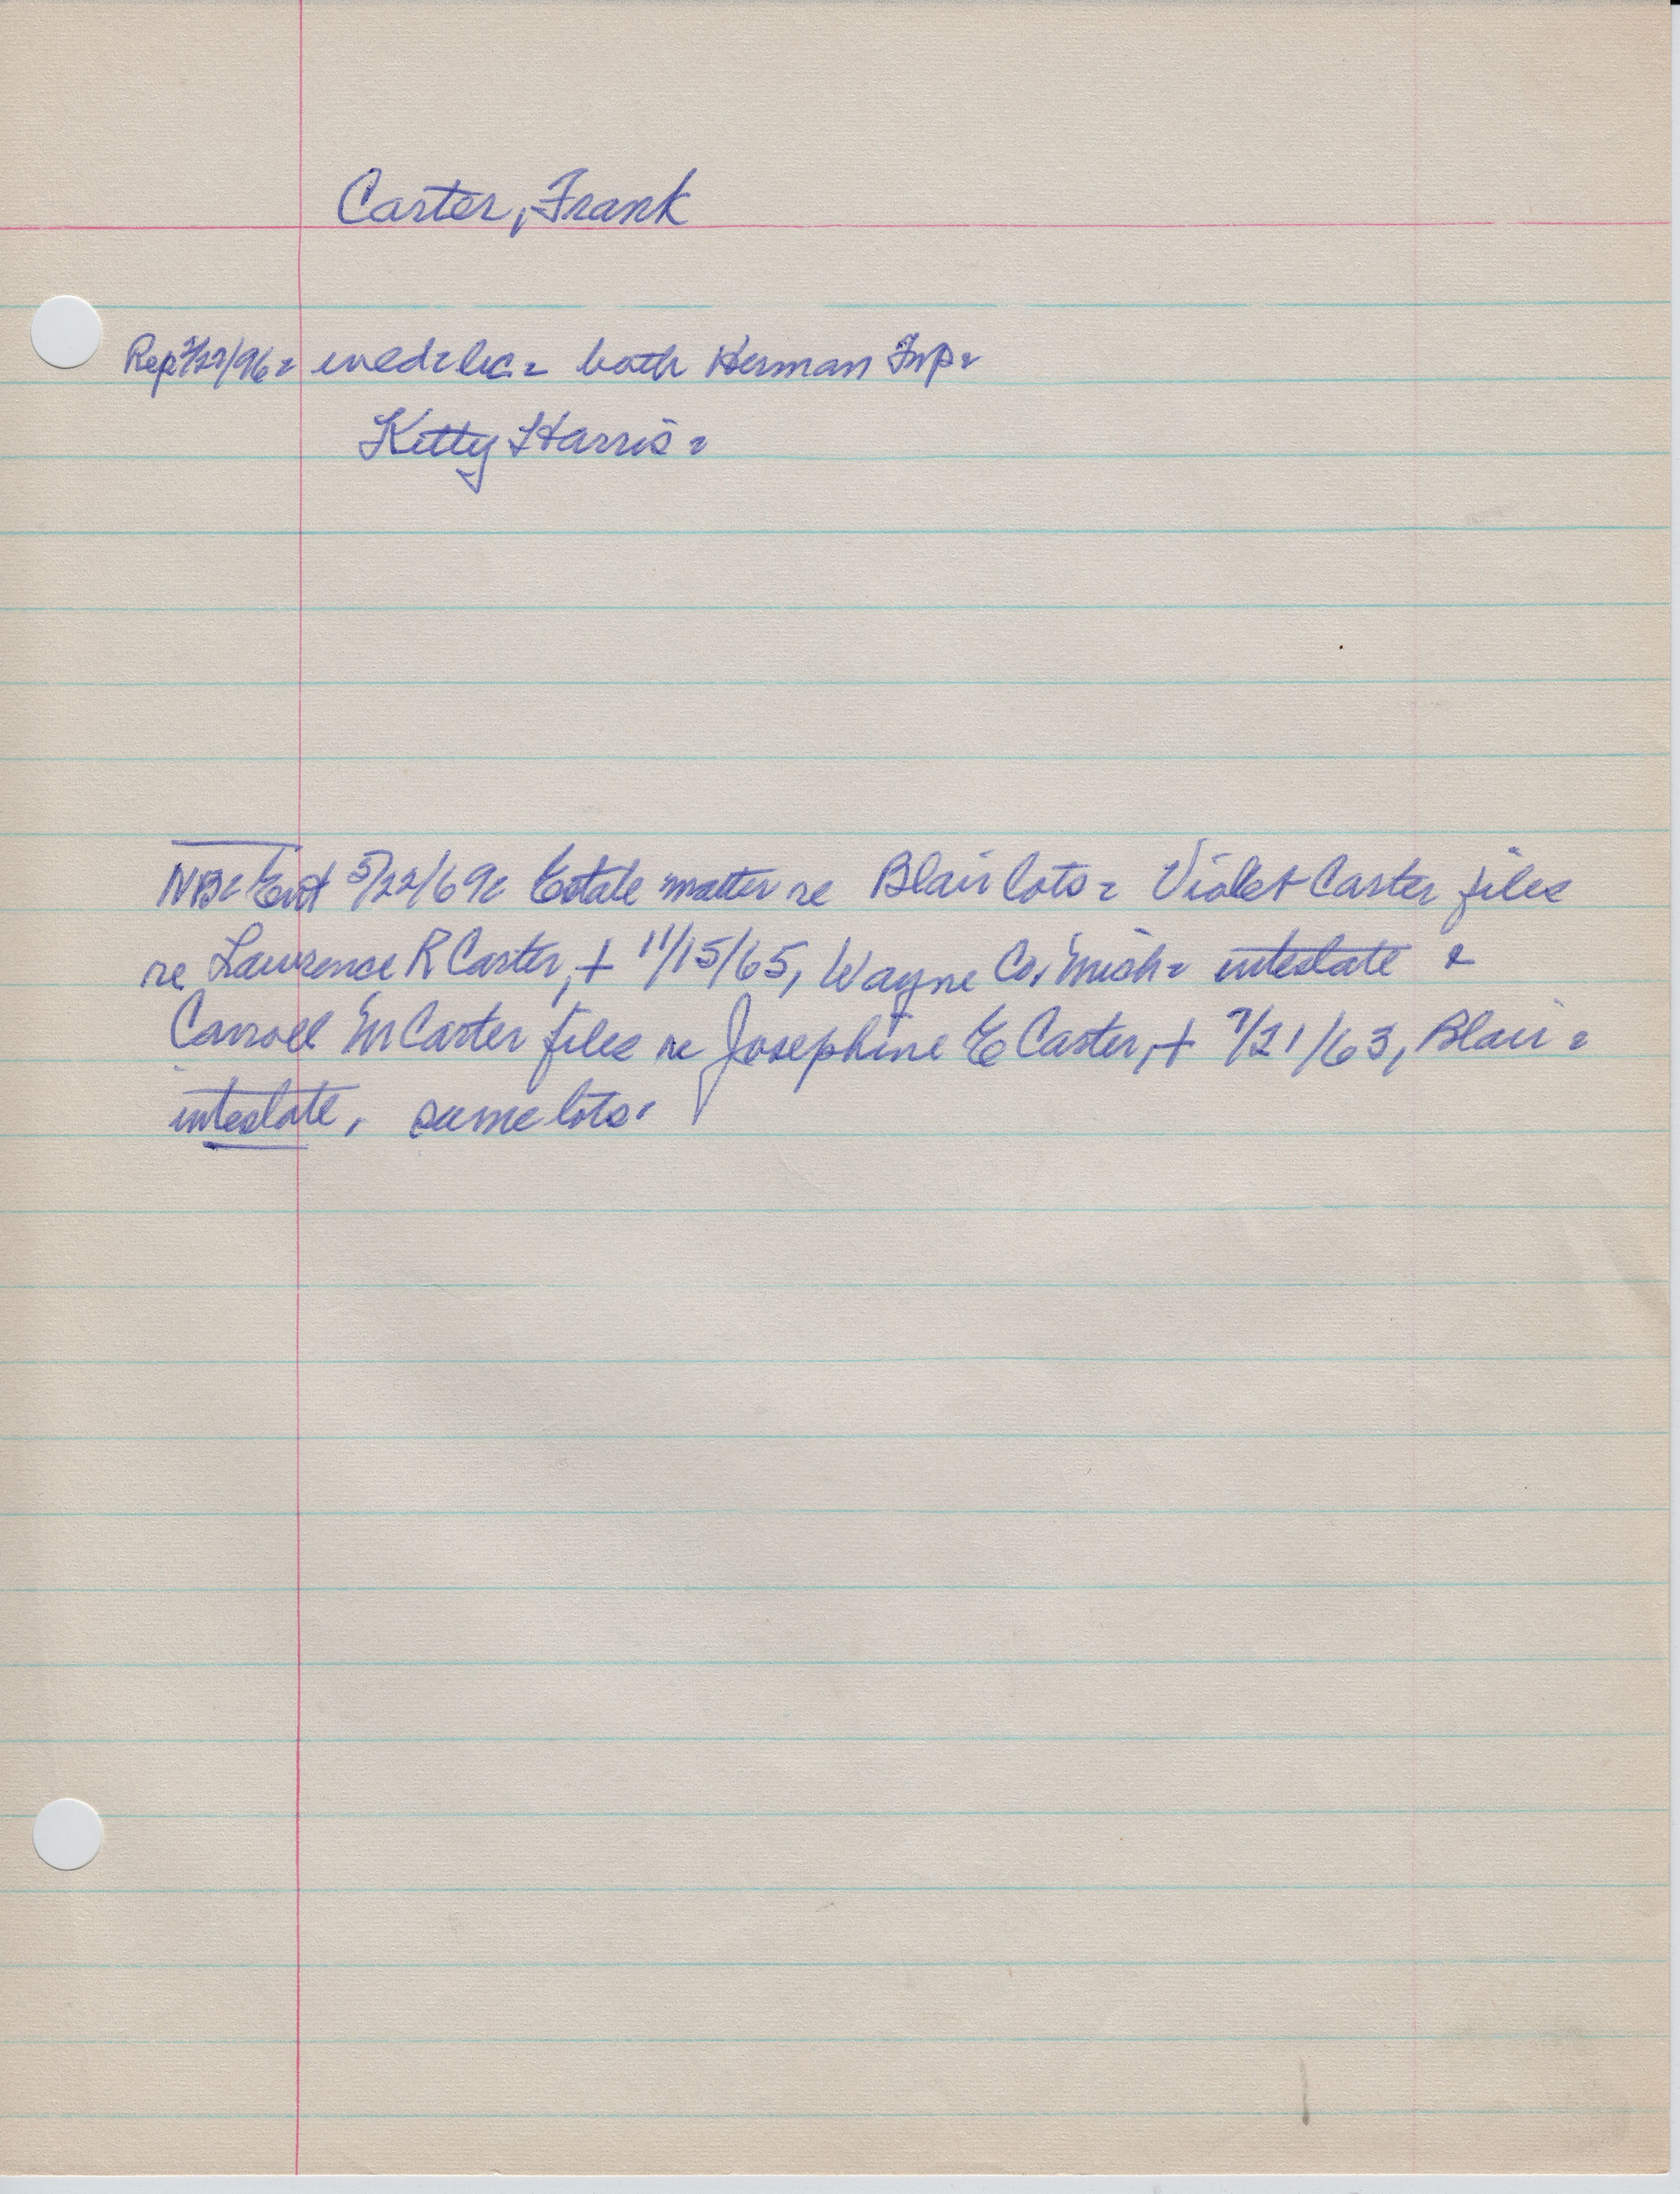 Carter, Frank
Rep 7/27/96 = wed lic = both Herman Twp =
Kitty Harris =
NB: Ent 5/22/69: Estate matter re Blair lots = Violet Carter files
re Lawrence R Carter, + 11/15/65, Wayne Co, Mich = intestate &
Carroll M Carter files re Josephine E Carter, + 7/21/63, Blair =
intestate, same lots.